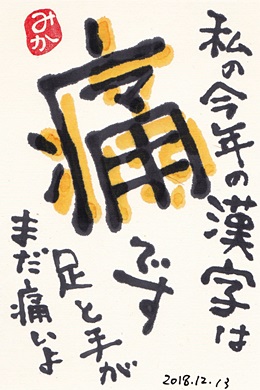 私の今年の漢字は
痛
です
足と手が
まだ痛いよ
2018.12.13
みか